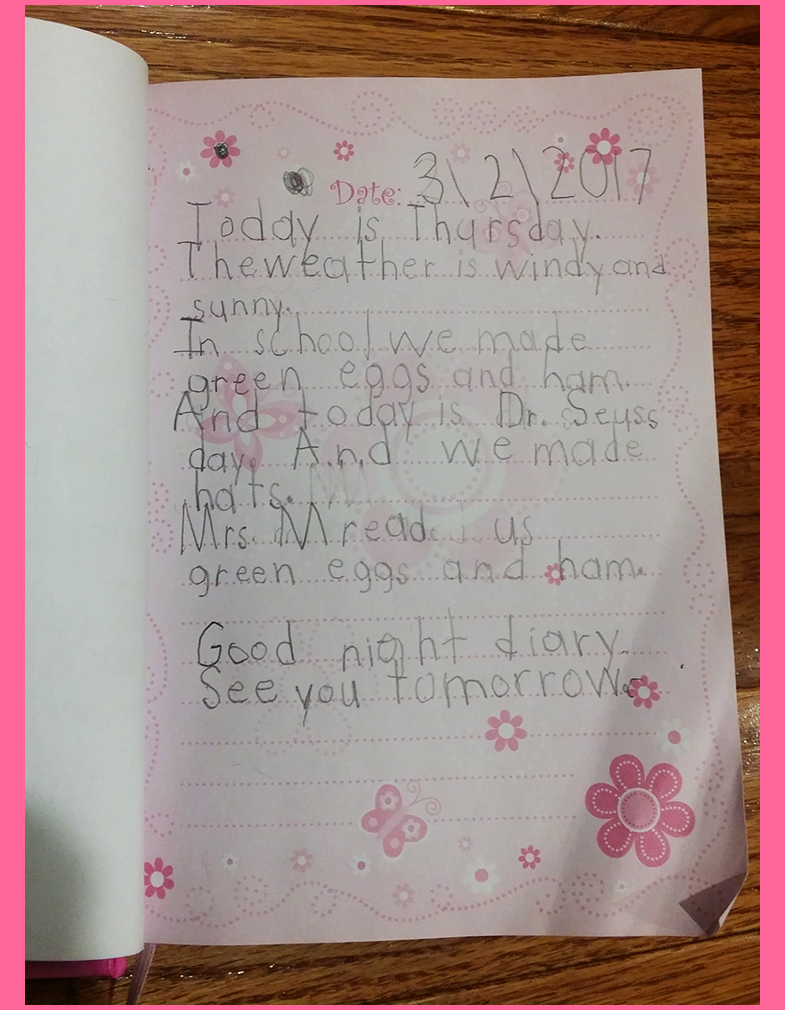 Date: 3\2\2017
Today is Thursday.
The weather is windy and
sunny.
In school we made
green eggs and ham.
And today is Dr. Seuss
day. And we made
hats.
Mrs. M read us
green eggs and ham.
Good night diary.
See you tomorrow.